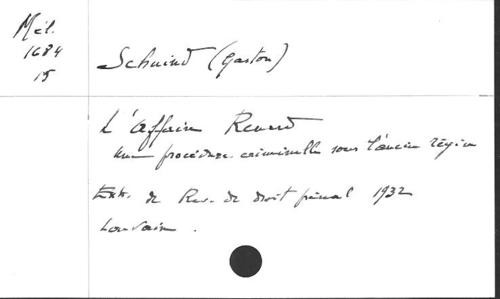 Mél.
1684
15
Schuind (Gaston)
L'Affaire Renard
Une procédure criminelle sous l'ancien régime
Extr. de Rev. de droit pénal 1932
Louvain.